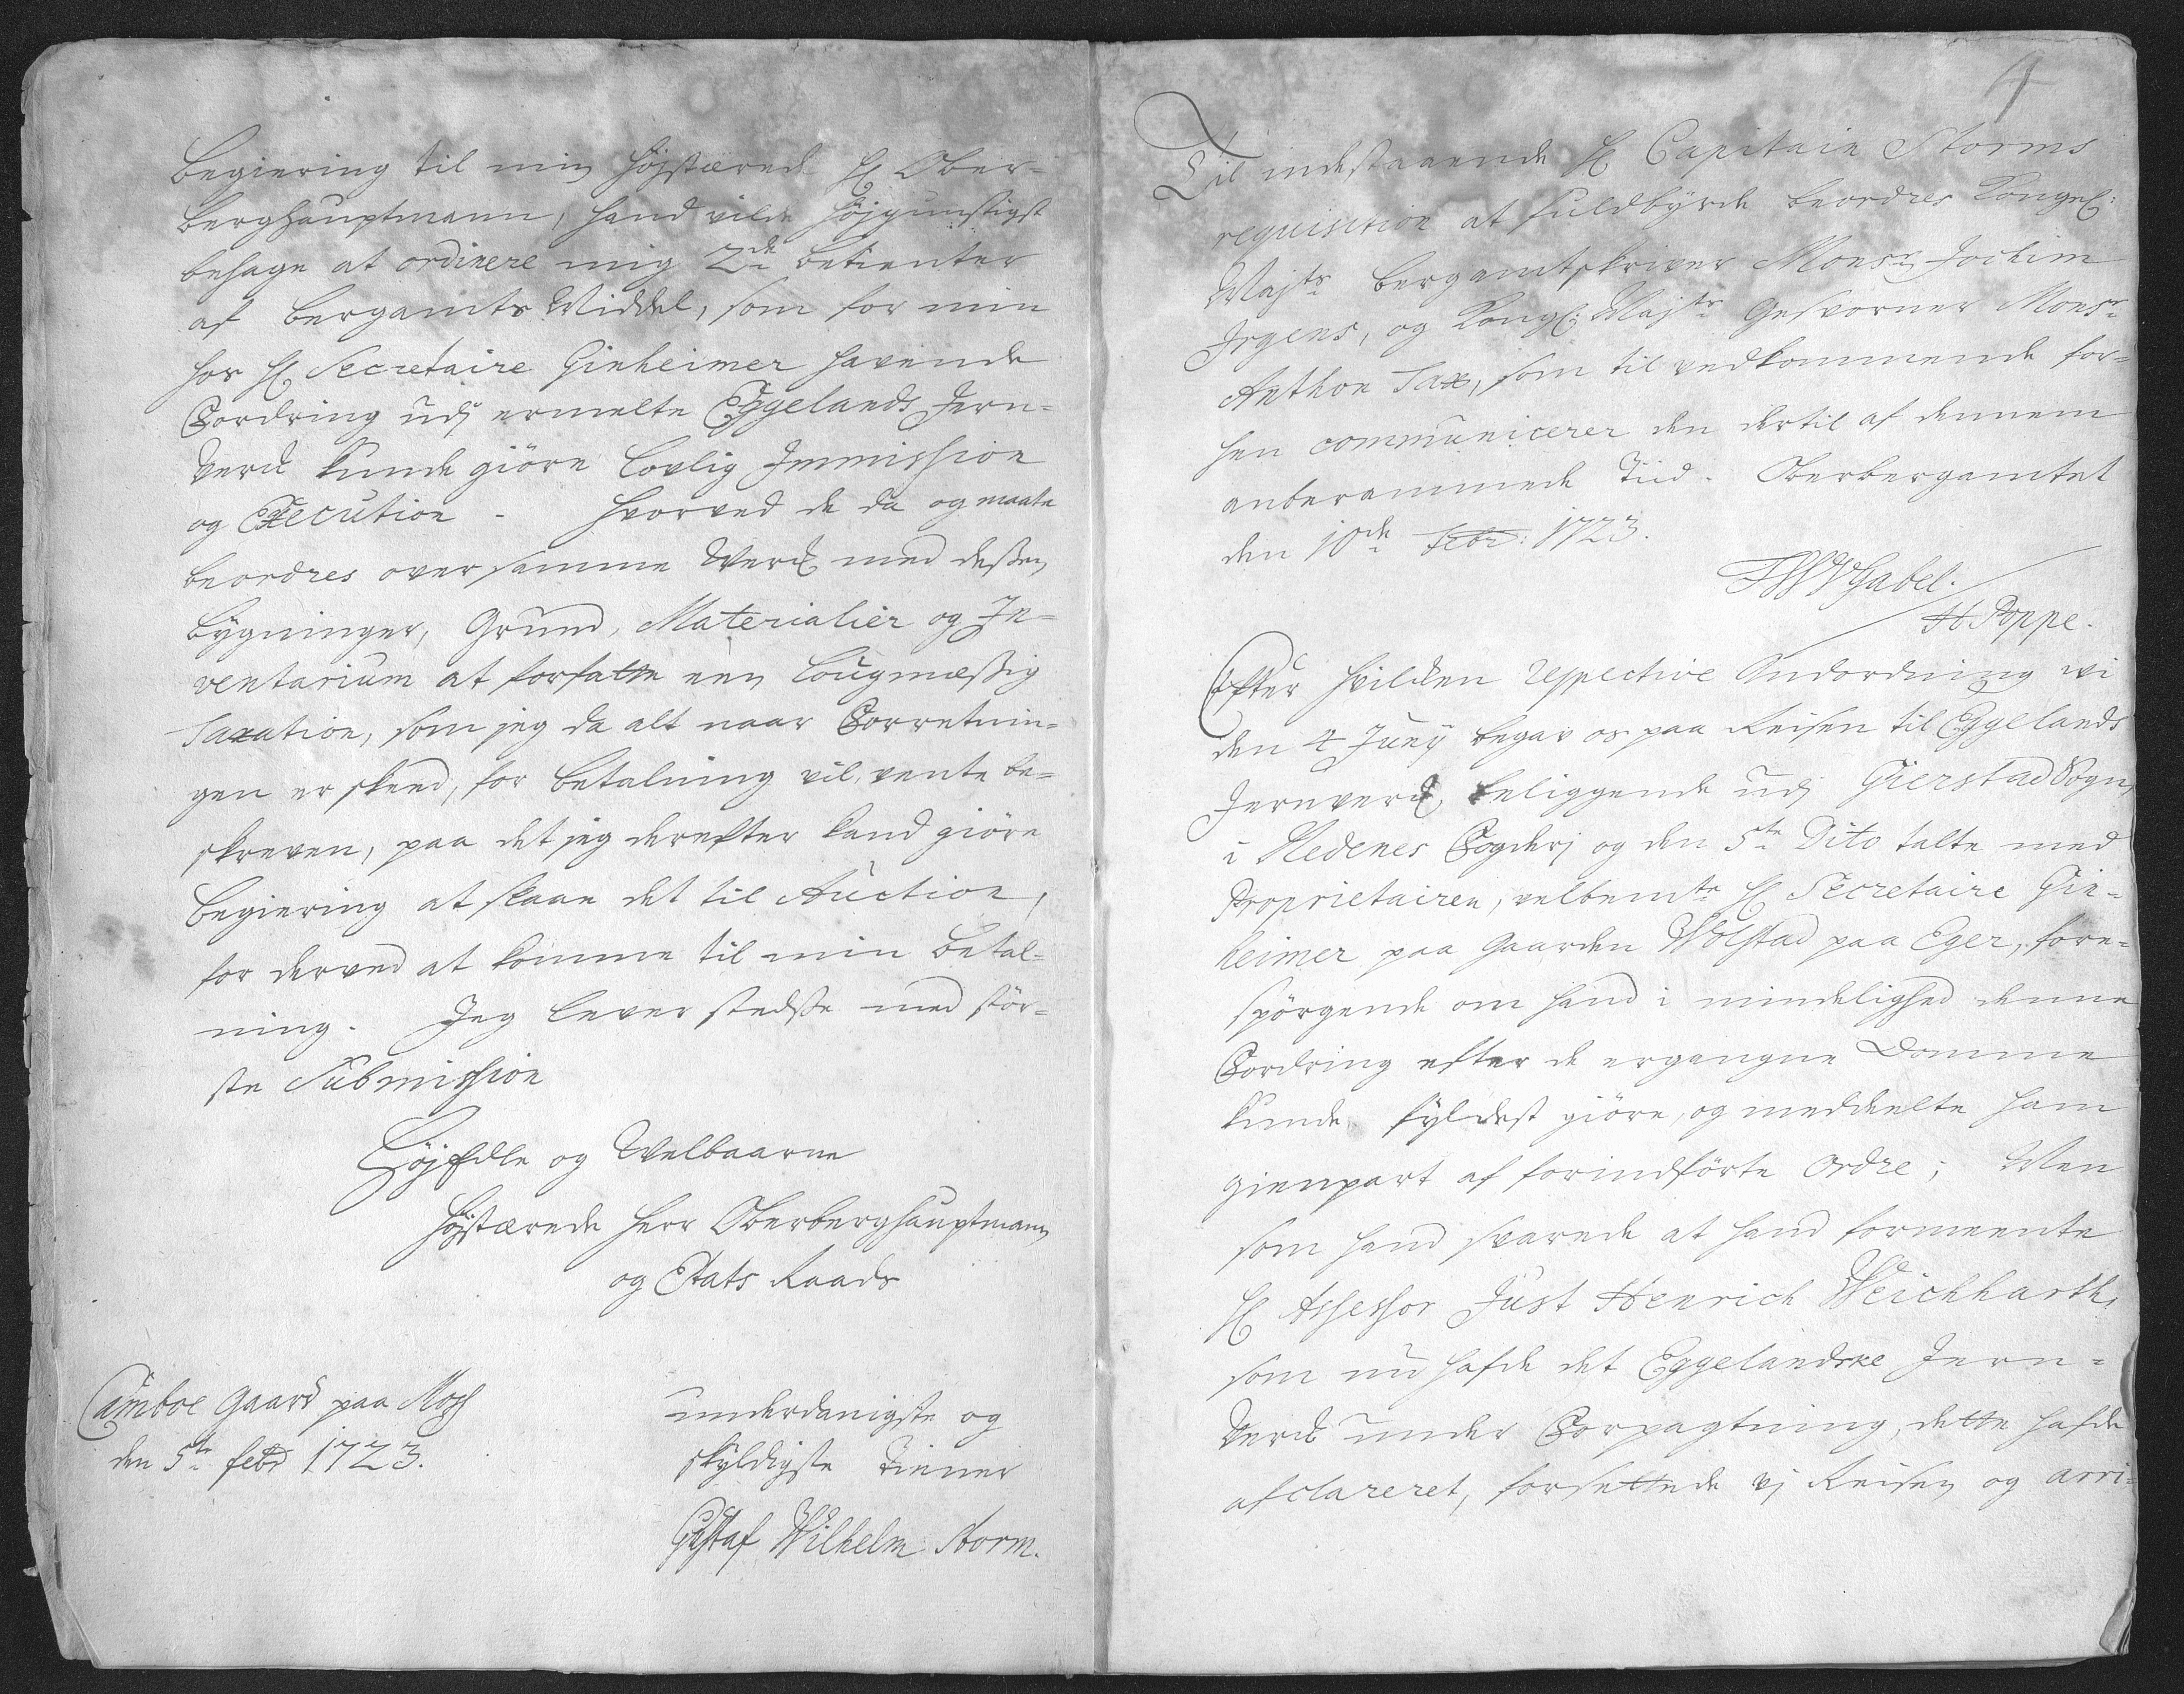 Begiering til min Højstærede H: Ober-
berghauptmann, hand vilde Højgunstigst
behage at ordinere mig 2de betienter
af Bergamts Middel, som for min
hos H: Secretaire Ginheimer havende
Fordring udj ermelte Eggelands Jern-
Verck kunde giöre lovlig Immission
og Execution - hvorved de da og maate
beordres over samme Werck med dessen
bygninger, Grund, Materialier og In-
ventarium at forfatte een Lougmæssig
Taxation, som jeg da alt naar Forretnin-
gen er skeed, for betalning vil vente be-
skreven, paa det jeg derefter kand giöre
Begiering at slaae det til Auction,
for derved at komme til min betal-
ning. Jeg lever stedsse med stör-
ste Submission
HöjEdle og Welbaarne
Højstærede Herr Oberberghauptmann
og Etats Raads
Camboe Gaard paa Moss
den 5te febr 1723.
underdanigste og
skyldigste Tienner
Gustaf Wilhelm Storm.
4
Til indestaaende H: Capitain Storms
requisition at fuldbyrde beordres Kongel:
Majts Bergamtskriver Monsr Jochim
Irgens, og Kongl: Majts Gesvorner Monsr
Anthon Sax, som til vedkommende for-
hen communicerer den dertil af dennem
anberammede Tiid. Oberbergamtet
den 10de Febr: 1723.
FWVGabel.
H Poppe.
Efter hvilcken respective Andordning vi
den 4 Junij begav os paa Reisen til Eggelands
Jernverck beliggende udj Gierstad Sogn
i Nedenes Fogderj og den 5te Dito talte med
Proprietairen, velbemte H: Secretaire Gin-
heimer paa Gaarden Wolstad paa Eger, fore-
spörgende om hand i mindelighed denne
Fordring efter de ergangne Domme
kunde fyldest giöre, og meddeelte ham
gienpart af forindförte Ordre; Men
som hand svarede at hand formeente
H: Assessor Just Henrich Weichharth,
som nu hafde det Eggelandske Jern-
Verck under Forpagtning, dette hafde
afclareret, forsettede vj Reisen og arri-